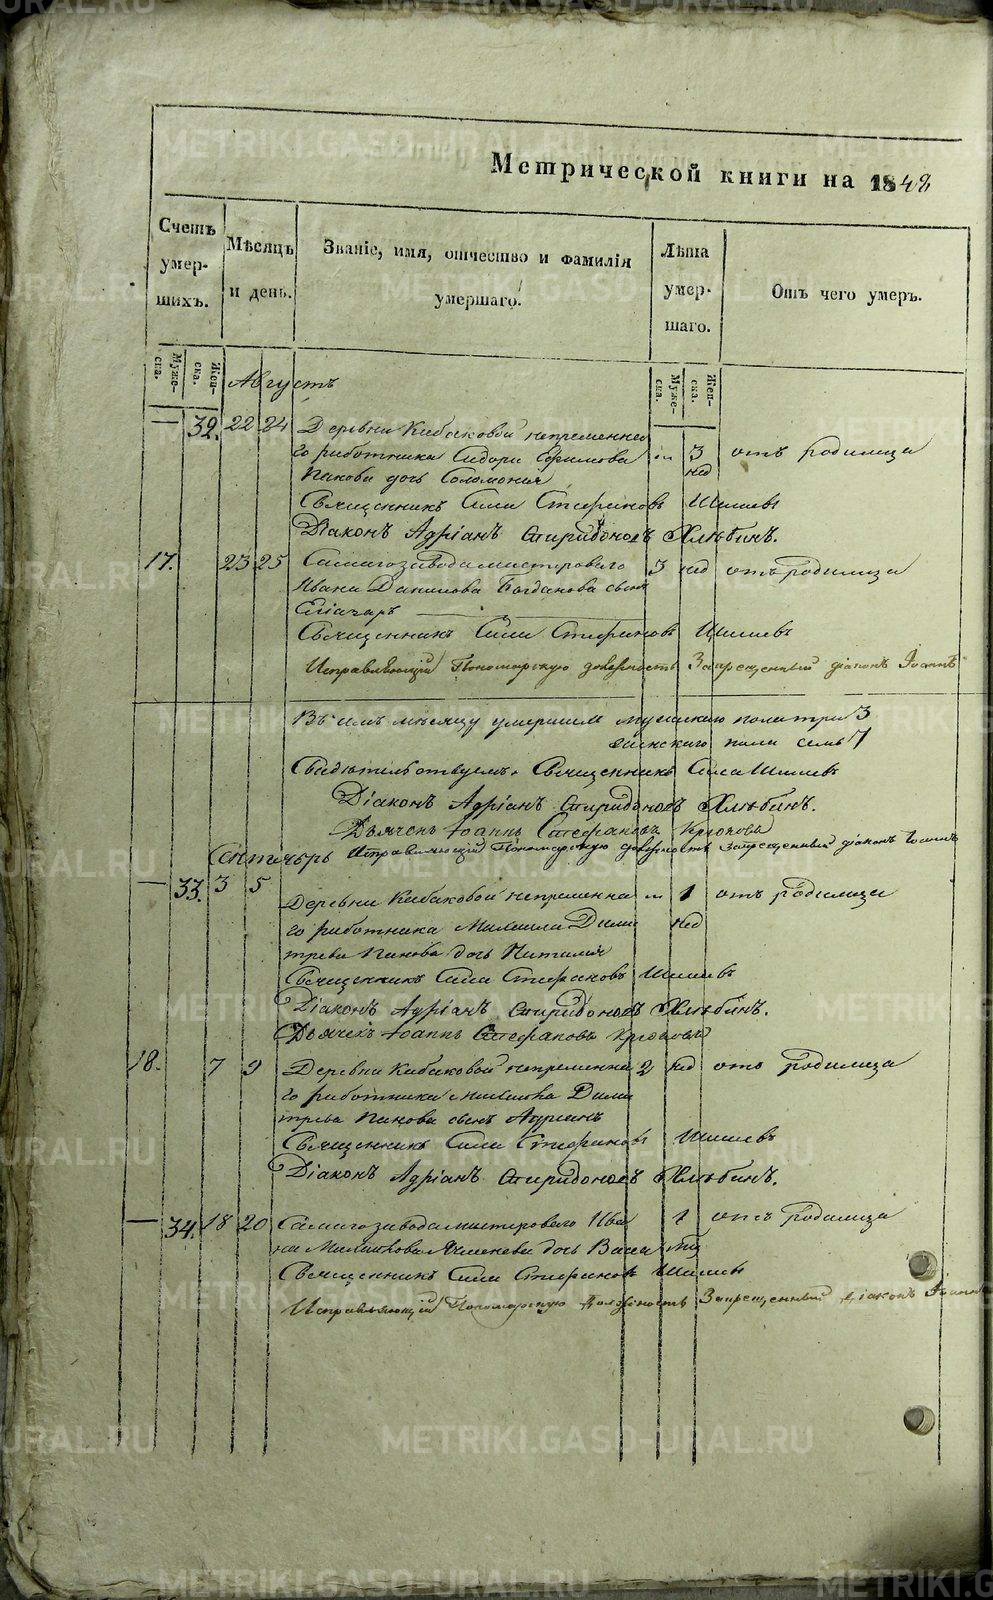 Метрической книги на 1848
Счетъ умер- шихъ.
Мѣсяцъ и день.
Званіе, имя, отчество и фамилія умершаго.
Лѣта умер- шаго.
Отъ чего умеръ.
Муже- ска.
Жен- ска.
Августъ
Муже- ска.
Жен- ска.
— 32. 22 24 Деревни Кабаковой непременна
го работника Сидора Ефимова 3 отъ родимца
Панова дочь Соломонія нед
Священникъ Сила Стефановъ Шишевъ
Діаконъ Адріанъ Спиридоновъ Хлѣбинъ.
17. 23 25 Самагозавода мастероваго 3 нед отъ родимца
Ивана Данилова Богданова сынъ
Еліазаръ
Священникъ Сила Стефановъ Шишевъ
Исправляющій Пономарскую должность Запрещенный діаконъ Іоаннъ
Въ семъ месяцу умершихъ мужскаго пола три 3
женскаго пола семь 7
Свидѣтельствуемъ, Священникъ Сила Шишевъ
Діаконъ Адріанъ Спиридоновъ Хлѣбинъ.
Дьячекъ Іоаннъ Стефановъ Крюковъ
Исправляющій Пономарскую должность запрещенный діаконъ Іоаннъ
Сентябрь
— 33. 3 5 Деревни Кабаковой непременна 1 отъ родимца
го работника Михаила Дими нед
трева Панова дочь Наталія
Священникъ Сила Стефановъ Шишевъ
Діаконъ Адріанъ Спиридоновъ Хлѣбинъ.
Дьячекъ Іоаннъ Стефановъ Крюковъ
18. 7 9 Деревни Кабаковой непременна 2 нед отъ родимца
го работника Дими
трева Панова сынъ Адріанъ
Священникъ Сила Стефановъ Шишевъ
Діаконъ Адріанъ Спиридоновъ Хлѣбинъ.
— 34. 18 20 Самагозавода мастероваго Ива 1 отъ родимца
на дочь Васса
Священникъ Сила Стефановъ Шишевъ
Исправляющій Пономарскую должность Запрещенный діаконъ Іоаннъ
METRIKI.GASO-URAL.RU